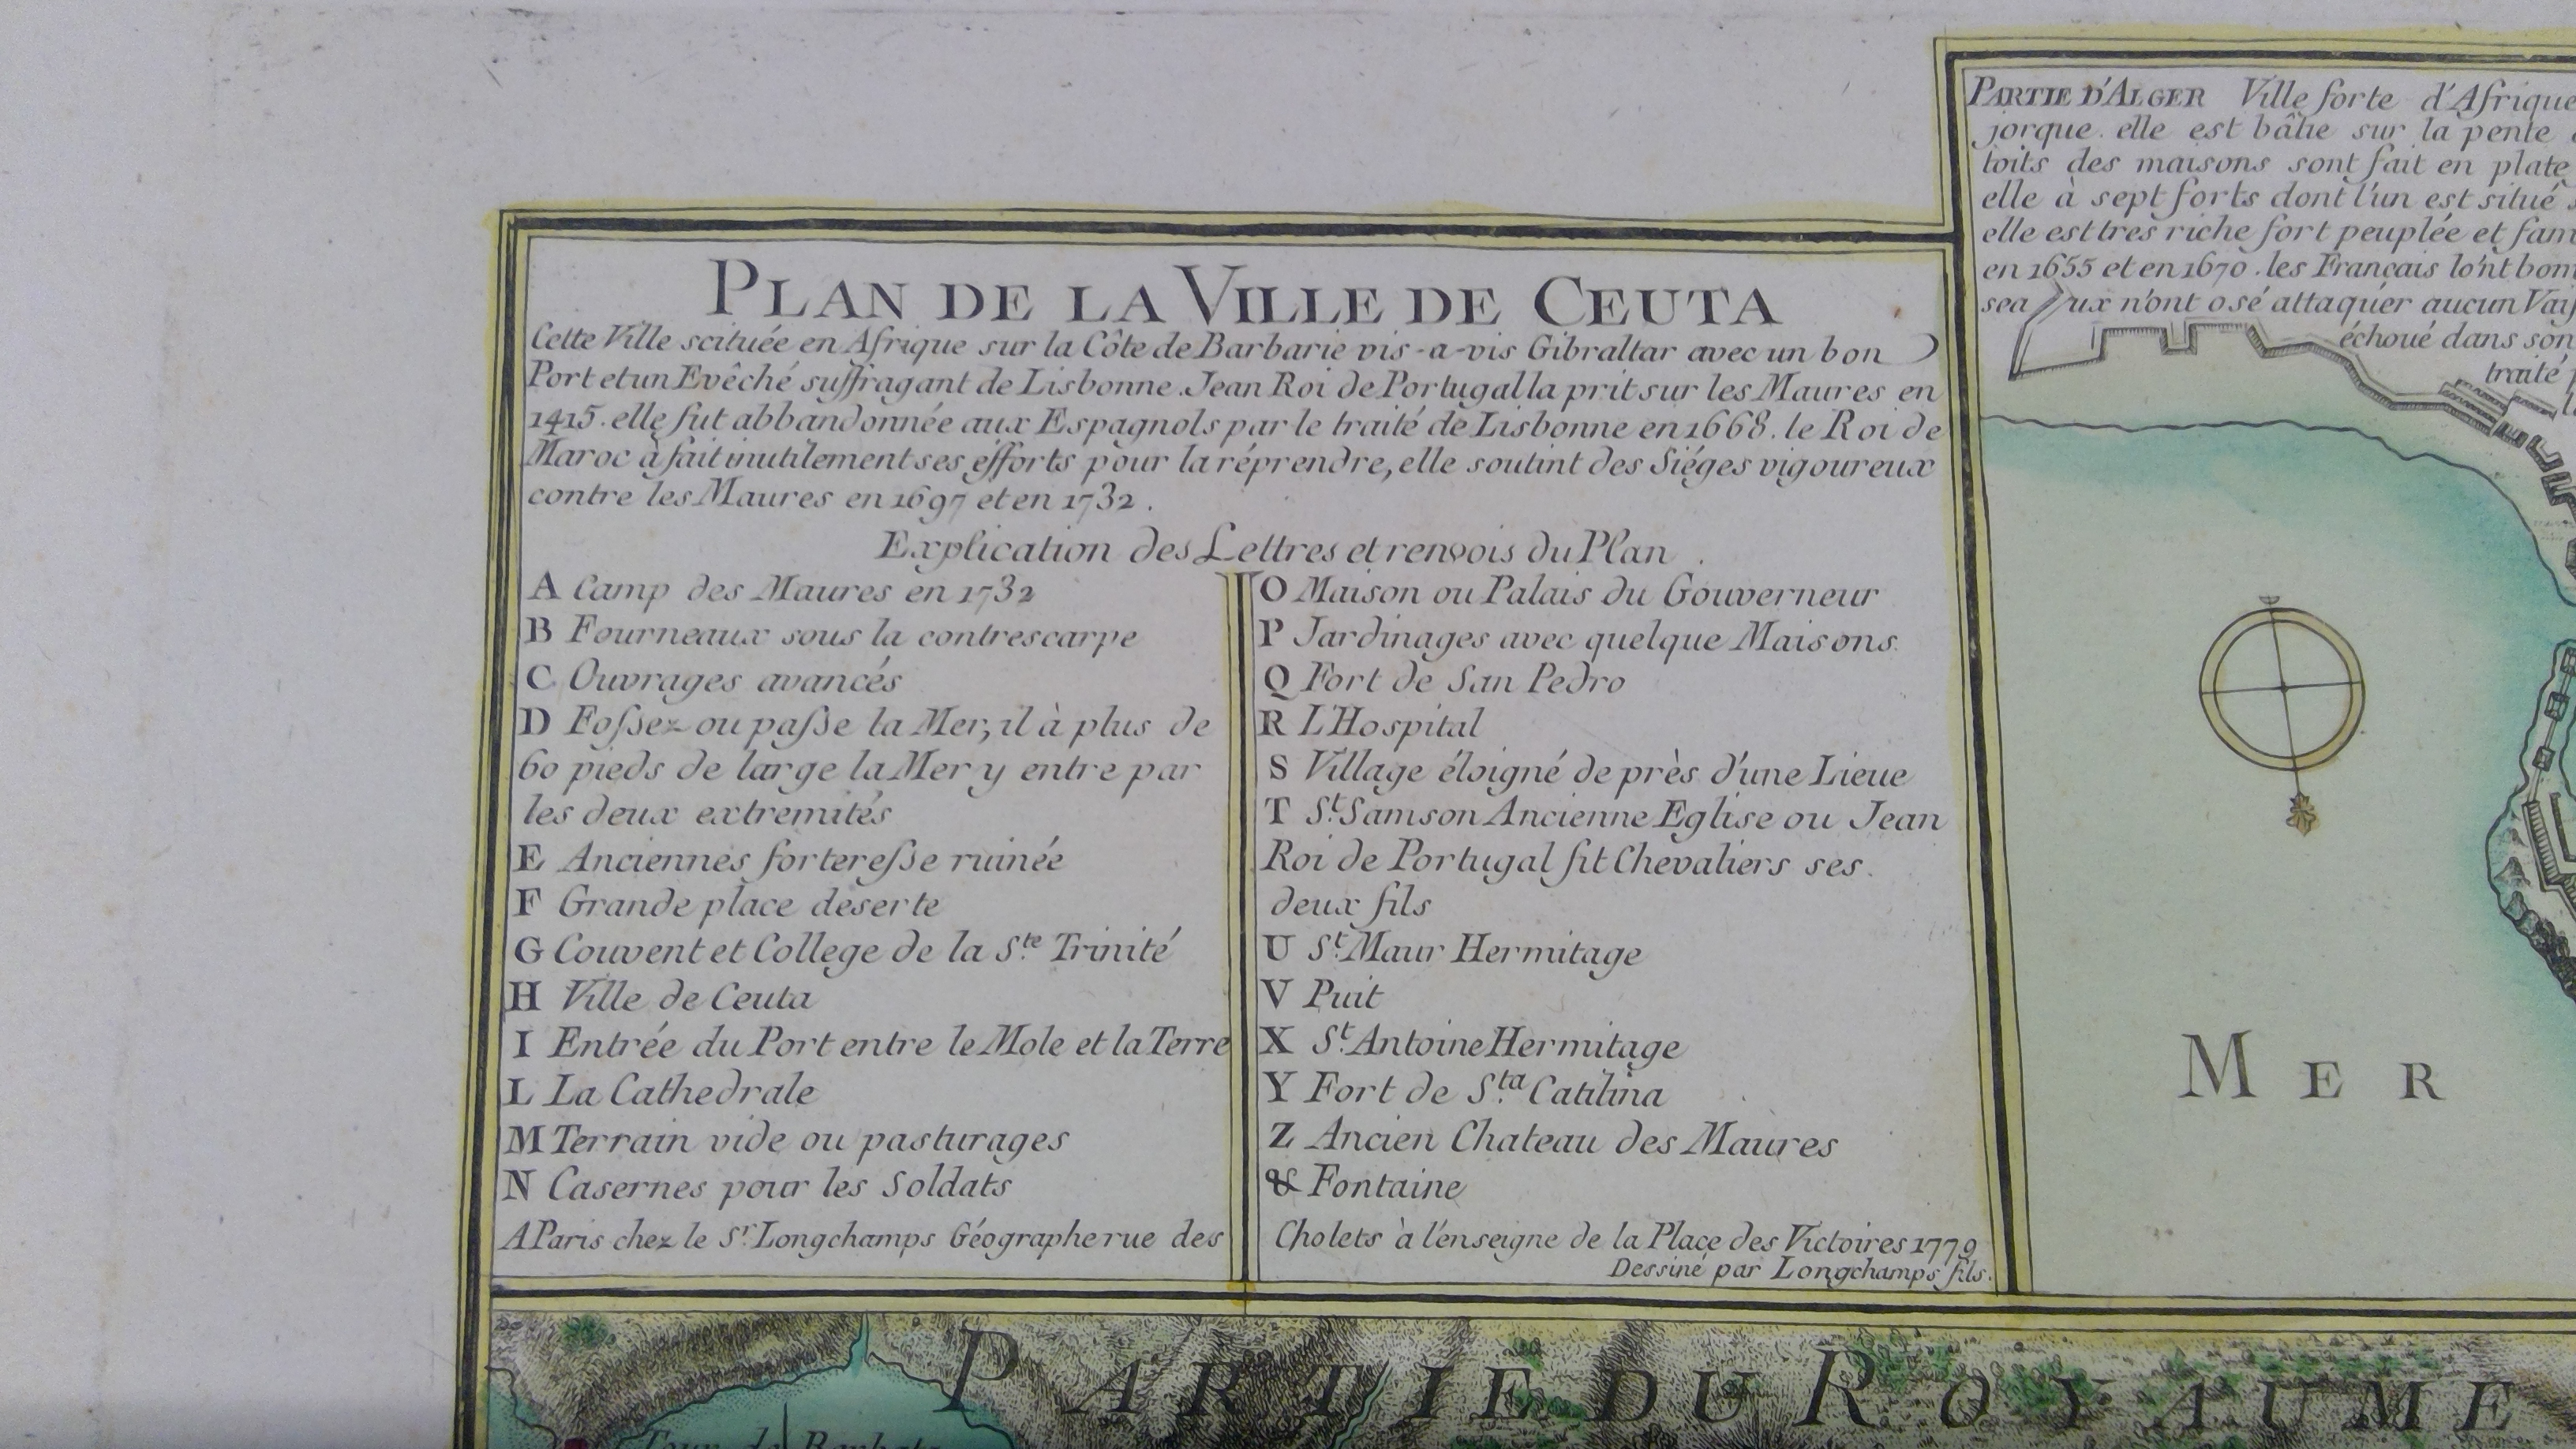 PLAN DE LA VILLE DE CEUTA
Cette Ville scituée en Afrique sur la Côte de Barbarie vis-a-vis Gibraltar avec un bon
Port et un Evêché suffragant de Lisbonne. Jean Roi de Portugal la prit sur les Maures en
1415. elle fut abbandonnée aux Espagnols par le traité de Lisbonne en 1668. le Roi de
Maroc à fait inutilement ses éfforts pour la réprendre, elle soutint des Siéges vigoureux
contre les Maures en 1697 et en 1732.
Explication des Lettres et renvois du Plan.
A Camp des Maures en 1732
B Fourneaux sous la contrescarpe
C Ouvrages avancés
D Foſsez ou paſse la Mer, il à plus de
60 pieds de large la Mer y entre par
les deux extremités
E Anciennes fortereſse ruinée
F Grande place deserte
G Couvent et College de la Ste. Trinité
H Ville de Ceuta
I Entrée du Port entre le Mole et la Terre
L La Cathedrale
M Terrain vide ou pasturages
N Casernes pour les Soldats
O Maison ou Palais du Gouverneur
P Jardinages avec quelque Maisons.
Q Fort de San Pedro
R L'Hospital
S Village éloigné de près d'une Lieue
T St. Samson Ancienne Eglise ou Jean
Roi de Portugal fit Chevaliers ses.
deux fils
U St. Maur Hermitage
V Puit
X St. Antoine Hermitage
Y Fort de Sta. Catilina
Z Ancien Chateau des Maures
& Fontaine
A Paris chez le Sr. Longchamps Géographe rue des Cholets à l'enseigne de la Place des Victoires 1779
Dessiné par Longchamps fils.
PARTIE D'ALGER Ville forte d'Afrique
jorque. elle est bâtie sur la pente
toits des maisons sont fait en plate
elle à sept forts dont l'un est situé
elle est tres riche fort peuplée et
en 1655 et en 1670. les Français lo'nt
seaux n'ont osé attaquér aucun
échoué dans son
traité
MER
PARTIE DU ROYAUME
Tour de